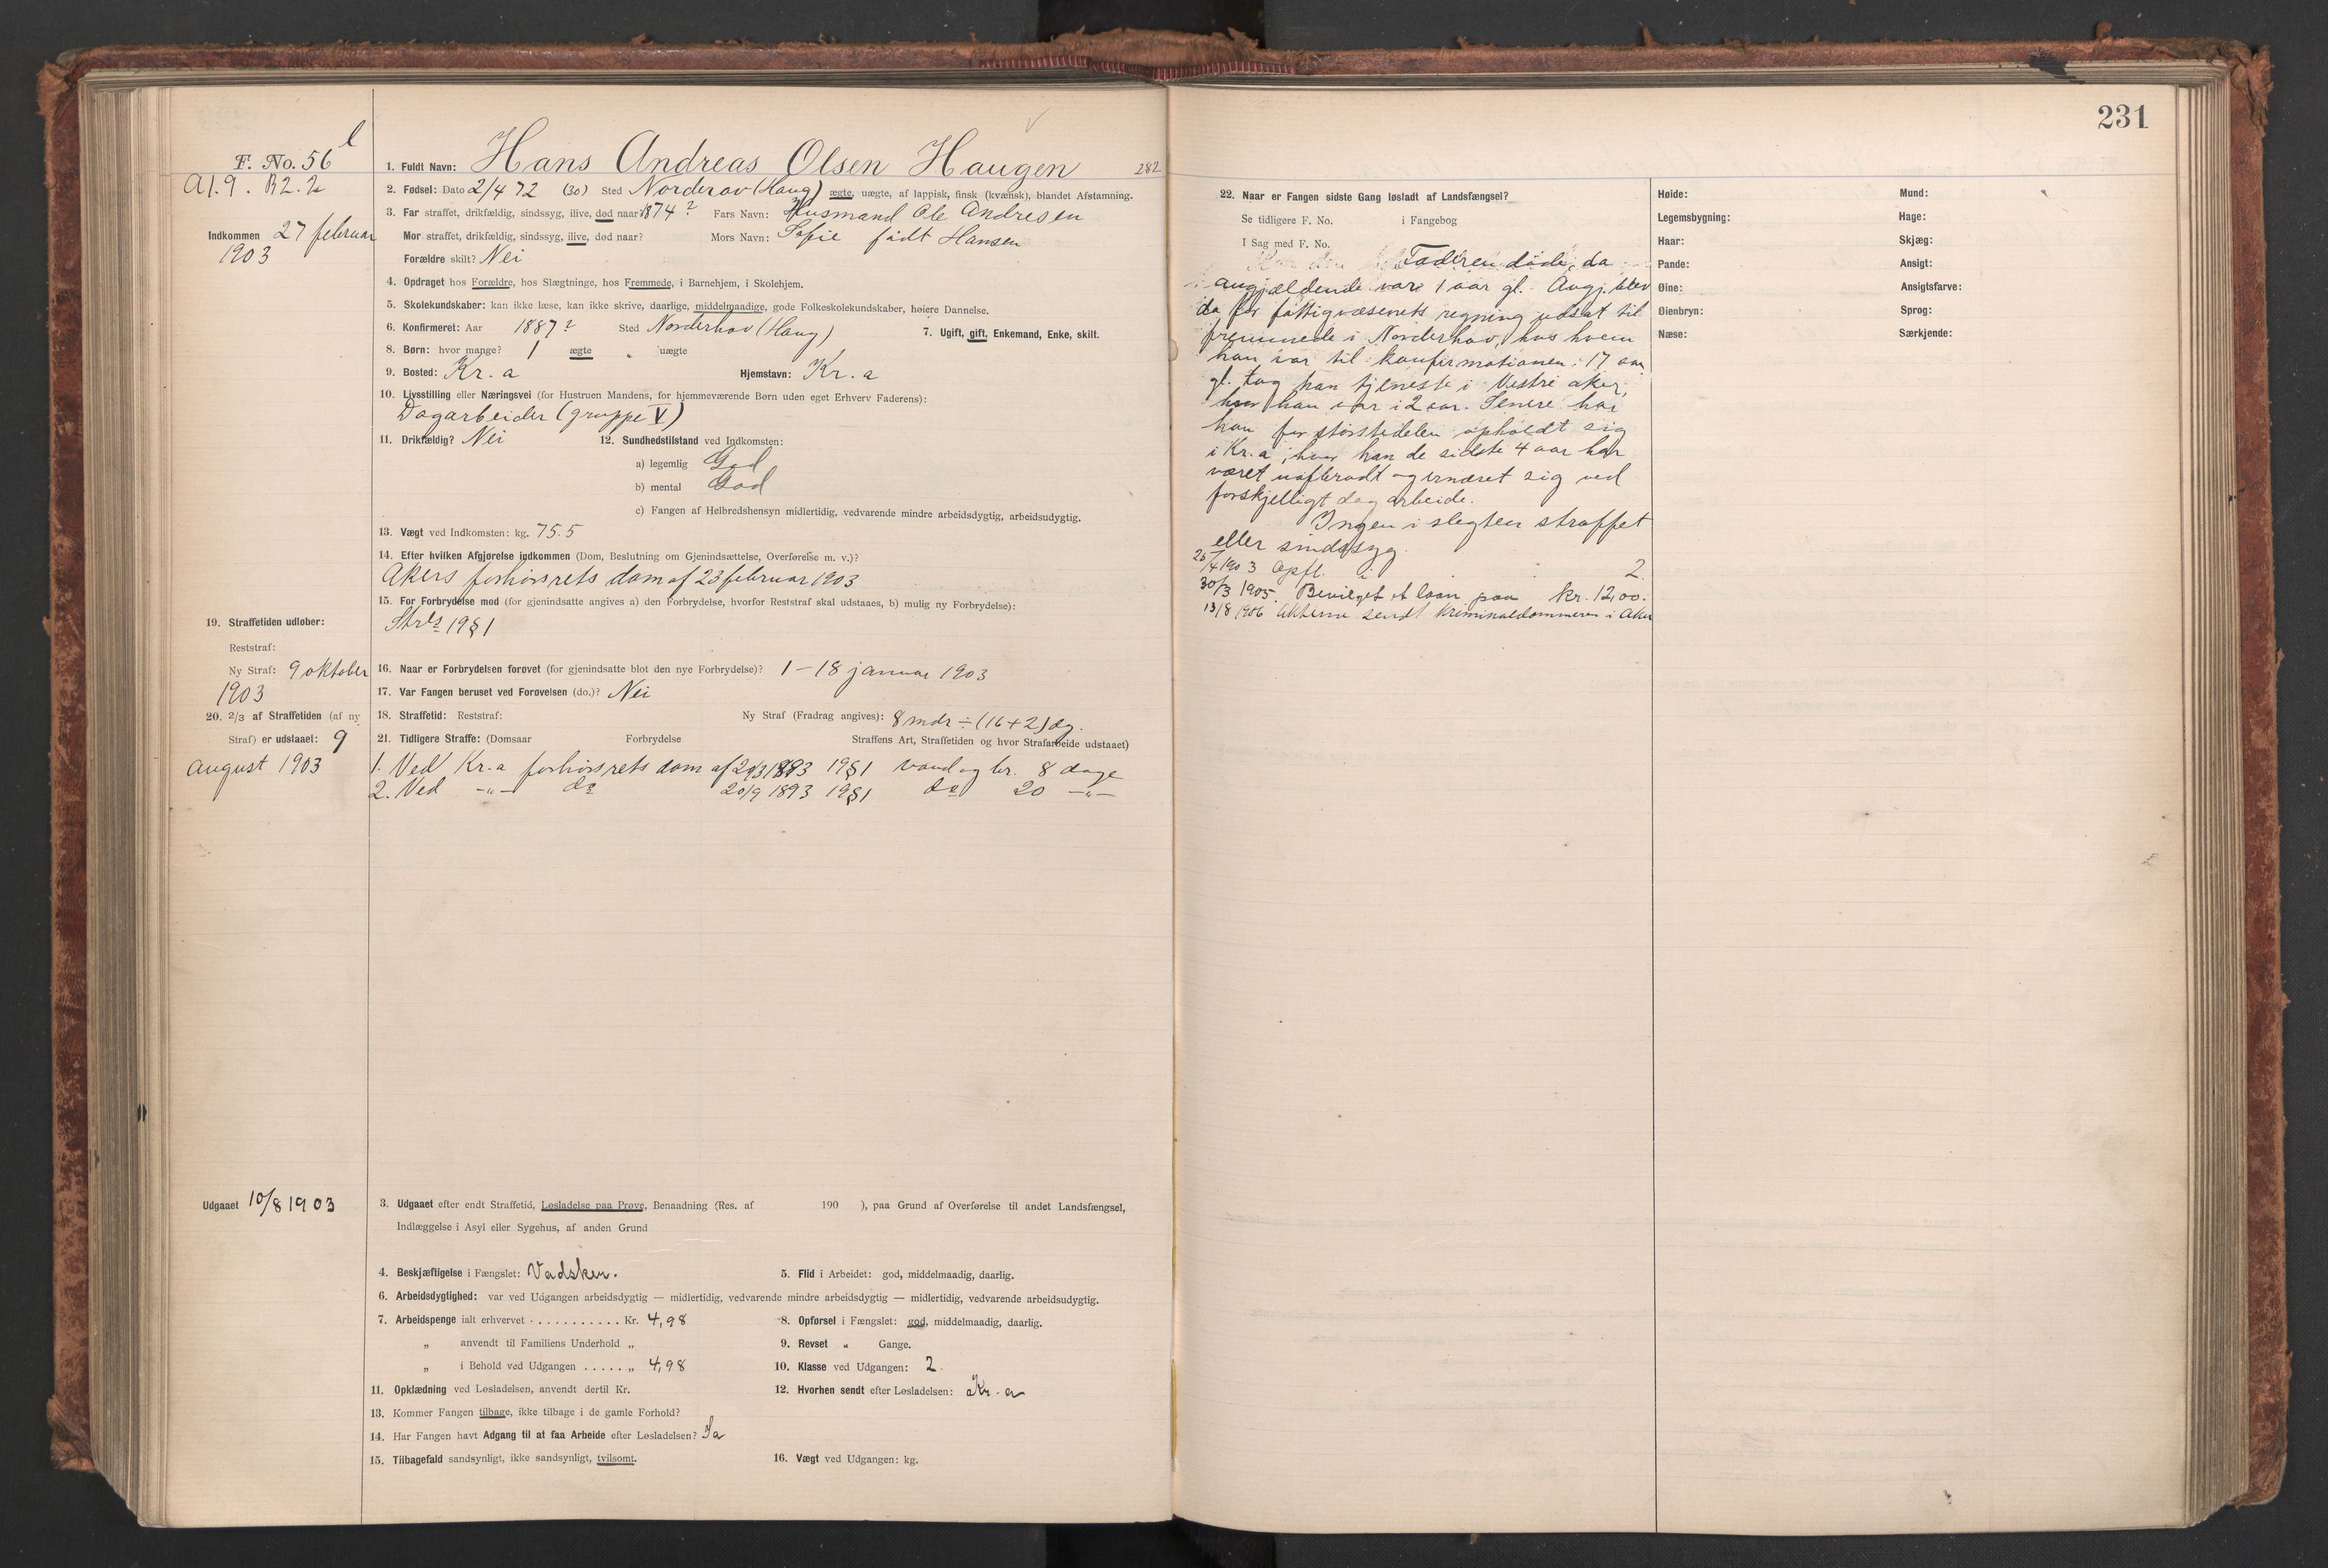 231
l
F. No. 56
A1.9. B2.2
Indkommen 27 februar
1903
1. Fuldt Navn: Hans Andreas Olsen Haugen 282
2. Fødsel: Dato 2/4 72 (30) Sted Norderov (Haug) ægte, uægte, af lappisk, finsk (kvænsk), blandet Afstamning.
3. Far straffet, drikfældig, sindssyg, ilive, død naar 1874? Fars Navn: Husmand Ole Andresen
Mor straffet, drikfældig, sindssyg, ilive, død naar? Mors Navn: Sofie født Hansen
Forældre skilt? Nei
4. Opdraget hos Forældre, hos Slægtninge, hos Fremmede, i Barnehjem, i Skolehjem.
5. Skolekundskaber: kan ikke læse, kan ikke skrive, daarlige, middelmaadige, gode Folkeskolekundskaber, høiere Dannelse.
6. Konfirmeret: Aar 1887? Sted Norderhov (Haug) 7. Ugift, gift, Enkemand, Enke, skilt.
8. Børn: hvor mange? 1 ægte " uægte
9. Bosted: Kr.a Hjemstavn: Kr.a
10. Livsstilling eller Næringsvei (for Hustruen Mandens, for hjemmeværende Børn uden eget Erhverv Faderens):
Dagarbeider (gruppe V)
11. Drikfældig? Nei 12. Sundhedstilstand ved Indkomsten:
a) legemlig God
b) mental God
c) Fangen af Helbredshensyn midlertidig, vedvarende mindre arbeidsdygtig, arbeidsudygtig.
13. Vægt ved Indkomsten: kg. 75.5
14. Efter hvilken Afgjørelse indkommen (Dom, Beslutning om Gjenindsættelse, Overførelse m. v.)?
Akers forhørsrets dom af 23 februar 1903
15. For Forbrydelse mod (for gjenindsatte angives a) den Forbrydelse, hvorfor Reststraf skal udstaaes, b) mulig ny Forbrydelse):
Strls 19§1
19. Straffetiden udløber:
Reststraf:
Ny Straf: 9 oktober
1903
16. Naar er Forbrydelsen forøvet (for gjenindsatte blot den nye Forbrydelse)? 1 – 18 januar 1903
17. Var Fangen beruset ved Forøvelsen (do.)? Nei
20. 2/3 af Straffetiden (af ny
Straf) er udstaaet: 9
august 1903
18. Straffetid: Reststraf: Ny Straf (Fradrag angives): 8 mdr ÷ (16+2) dg.
21. Tidligere Straffe: (Domsaar Forbrydelse Straffens Art, Straffetiden og hvor Strafarbeide udstaaet)
1. Ved Kr.a forhørsrets dom af 1893 19§1 vand og br. 8 dage
2. Ved —"— do 20/9 1893 19§1 do 20 —"—
Udgaaet 10/8 1903
3. Udgaaet efter endt Straffetid, Løsladelse paa Prøve, Benaadning (Res. af 190 ), paa Grund af Overførelse til andet Landsfængsel,
Indlæggelse i Asyl eller Sygehus, af anden Grund
4. Beskjæftigelse i Fængslet: Vadsker. 5. Flid i Arbeidet: god, middelmaadig, daarlig.
6. Arbeidsdygtighed: var ved Udgangen arbeidsdygtig — midlertidig, vedvarende mindre arbeidsdygtig — midlertidig, vedvarende arbeidsudygtig.
7. Arbeidspenge ialt erhvervet . . . . . . . . . . . Kr. 4,98 8. Opførsel i Fængslet: god, middelmaadig, daarlig.
„ anvendt til Familiens Underhold „ 9. Revset " Gange.
„ i Behold ved Udgangen . . . . . „ 4,98 10. Klasse ved Udgangen: 2.
11. Opklædning ved Løsladelsen, anvendt dertil Kr. 12. Hvorhen sendt efter Løsladelsen: Kr.a
13. Kommer Fangen tilbage, ikke tilbage i de gamle Forhold?
14. Har Fangen havt Adgang til at faa Arbeide efter Løsladelsen? Ja
15. Tilbagefald sandsynligt, ikke sandsynligt, tvilsomt. 16. Vægt ved Udgangen: kg.
22. Naar er Fangen sidste Gang løsladt af Landsfængsel?
Se tidligere F. No. i Fangebog
I Sag med F. No.
Faderen døde, da
angjældende vare 1 aar gl. Angj. blev
da for fattigvæsenets regning udsat til
fremmede i Norderhov, hos hvem
han var til konfirmationen. 17 aar
gl. tog han tjeneste i Vestre aker,
hvor han var i 2 aar. Senere har
han for størstedelen opholdt sig
i Kr.a, hvor han de sidste 4 aar har
været uafbrudt og ernæret sig ved
forskjelligt dagarbeide.
Ingen i slegten straffet
eller sindssyg.
25/4 1903 Opfl. i 2.
30/3 1905. Bevilget et laan paa kr. 12,00.
13/8 1906 Akterne sendt kriminaldommeren i Aker
Høide:
Legemsbygning:
Haar:
Pande:
Øine:
Øienbryn:
Næse:
Mund:
Hage:
Skjæg:
Ansigt:
Ansigtsfarve:
Sprog:
Særkjende: